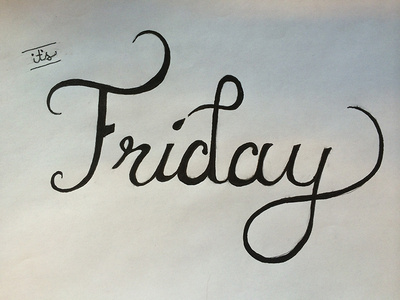 it's
Friday